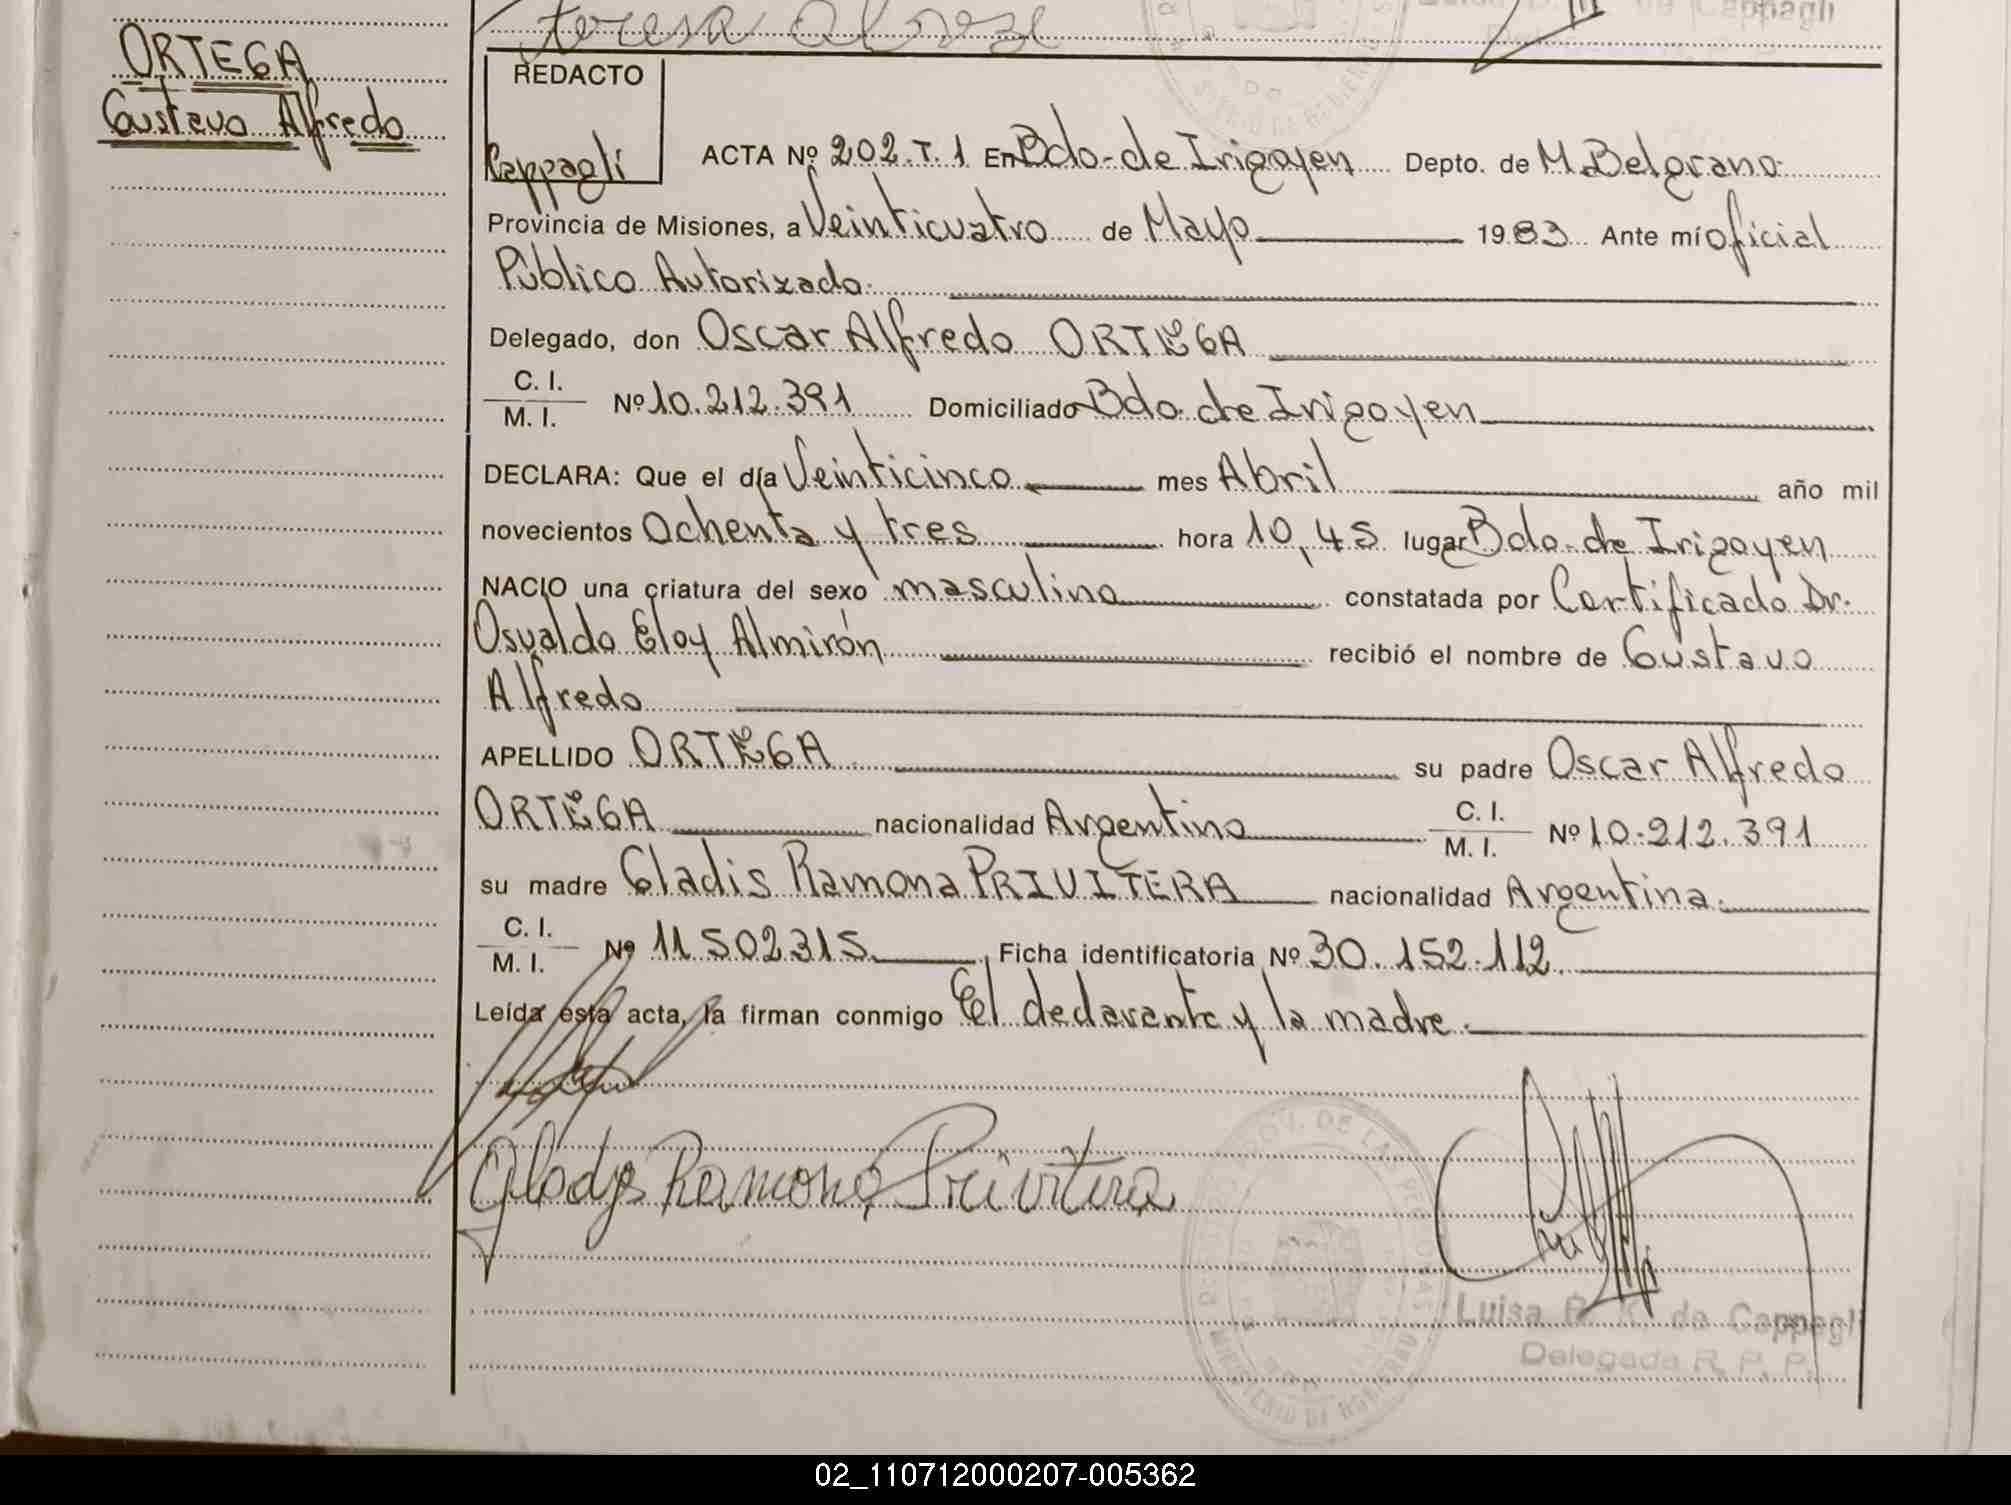 ORTEGA
Gustavo Alfredo
teresa
de Cappagli
REDACTO
Cappagli
ACTA Nº 202.T.1 En Bdo. de Irigoyen Depto. de M. Belgrano
Provincia de Misiones, a Veinticuatro de Mayo 1983 Ante mí oficial
Público Autorizado.
Delegado, don Oscar Alfredo ORTEGA
C. I.
M. I. Nº 10.212.391 Domiciliado Bdo. de Irigoyen
DECLARA: Que el día Veinticinco mes Abril año mil
novecientos Ochenta y tres hora 10,45 lugar Bdo. de Irigoyen
NACIO una criatura del sexo masculino constatada por Certificado Dr.
Osvaldo Eloy Almirón recibió el nombre de Gustavo
Alfredo
APELLIDO ORTEGA su padre Oscar Alfredo
ORTEGA nacionalidad Argentino C. I.
M. I. Nº 10.212.391
su madre Gladis Ramona PRIVITERA nacionalidad Argentina.
C. I.
M. I. Nº 11.502.315 Ficha identificatoria Nº 30.152.112.
Leída esta acta, la firman conmigo El declarante y la madre.
Gladys Ramona Privitera
DE LAS PERSONAS
MINISTERIO DE GOBIERNO
Luisa R. K. de Cappagli
Delegada R. P. P.
02_110712000207-005362